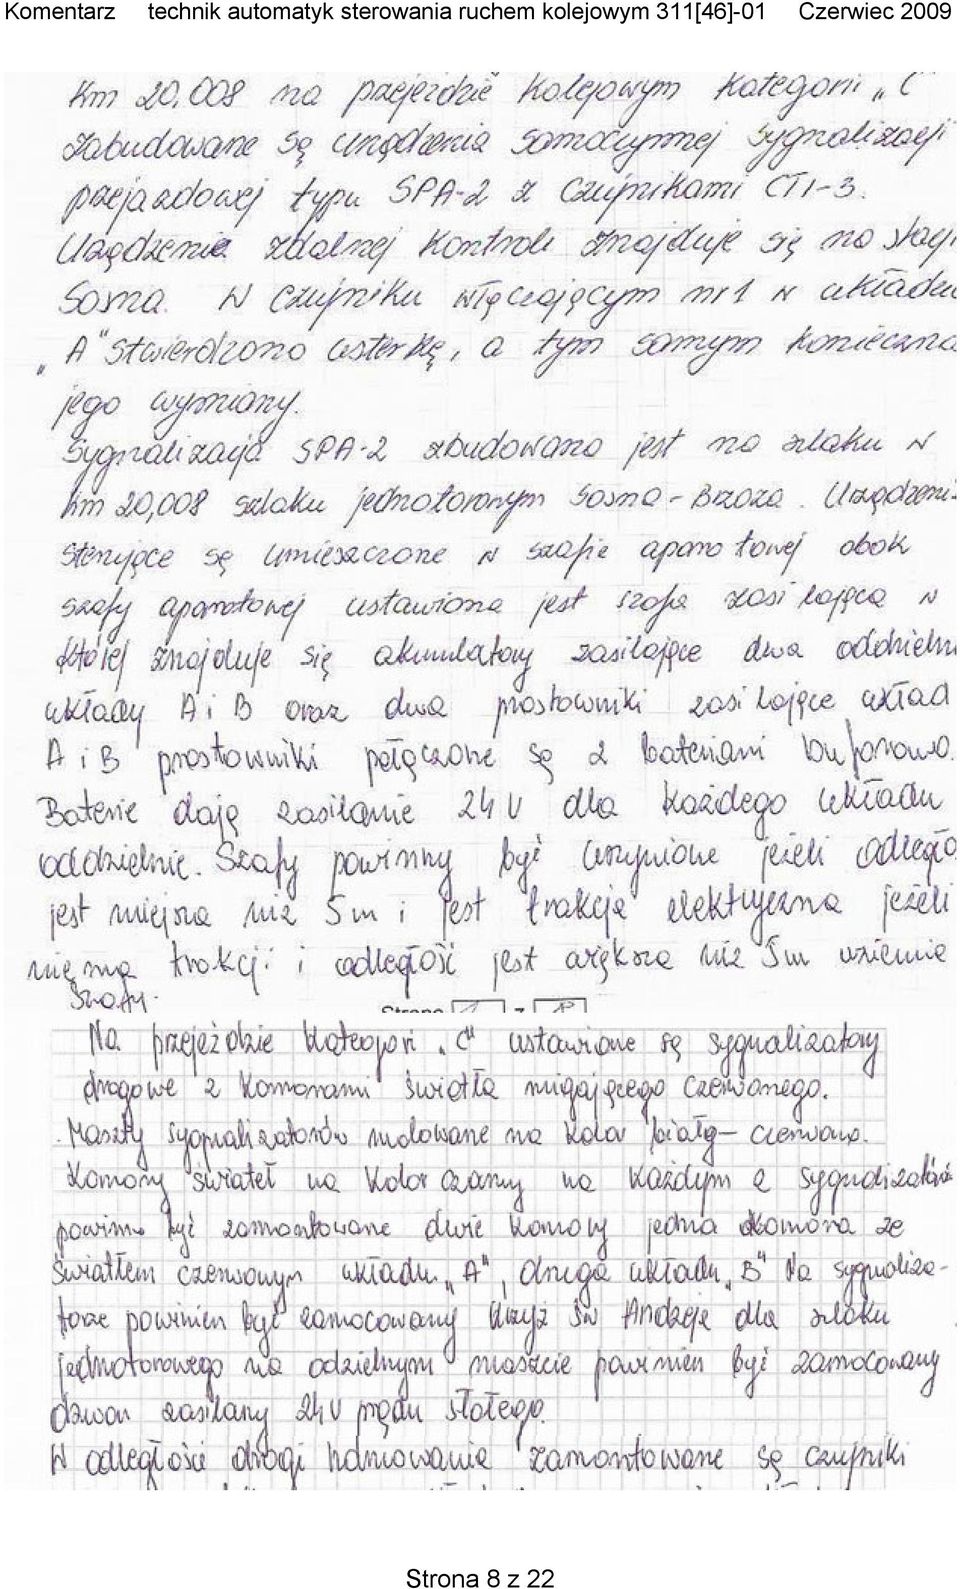 Komentarz technik automatyk sterowania ruchem kolejowym 311[46]-01 Czerwiec 2009
Km 20.008 na przejeździe kolejowym kategorii „C"
zabudowane są urządzenia samoczynnej sygnalizacji
przejazdowej typu SPA-2 z czujnikami CTI-3.
Urządzenie zdalnej kontroli znajduje się na stacji
Sosna. W czujniku włączającym nr 1 w układu
„A" stwierdzono usterkę, a tym samym konieczna
jego wymiany.
Sygnalizacja SPA-2 zbudowana jest na szlaku w
km 20,008 szlaku jednotorowym Sosna - Brzoza. Urządzeni
sterujące są umieszczone w szafie aparatowej obok
szafy aparatowej ustawiona jest szafa zasilająca w
której znajduje się akumulatory zasilające dwa oddzieln
układy A i B oraz dwa prostowniki zasilające układ
A i B prostowniki połączone są z bateriami buforowo.
Baterie dają zasilanie 24 V dla każdego układu
oddzielnie. Szafy powinny być uszynione jeżeli odległo
jest mniejsza niż 5m i jest trakcja elektryczna jeżeli
nie ma trakcji i odległość jest większa niż 5m uziemie
szafy.
Strona z
Na przejeździe kategori „C" ustawione są sygnalizatory
drogowe z komorami światła migającego czerwonego.
Maszty sygnalizatorów malowane na kolor biało- czerwono.
Komory świateł na kolor czarny na każdym z sygnalizatorów
powinno być zamontowane dwie komory jedna komora ze
światłem czerwonym układu „A", druga układu „B" Na sygnaliza-
torze powinien być zamocowany krzyż św Andrzeja dla szlaku
jednotorowego na odzielnym maszcie powinien być zamocowany
dzwon zasilany 24V prądu stałego.
W odległości drogi hamowania zamontowane są czujniki
Strona 8 z 22